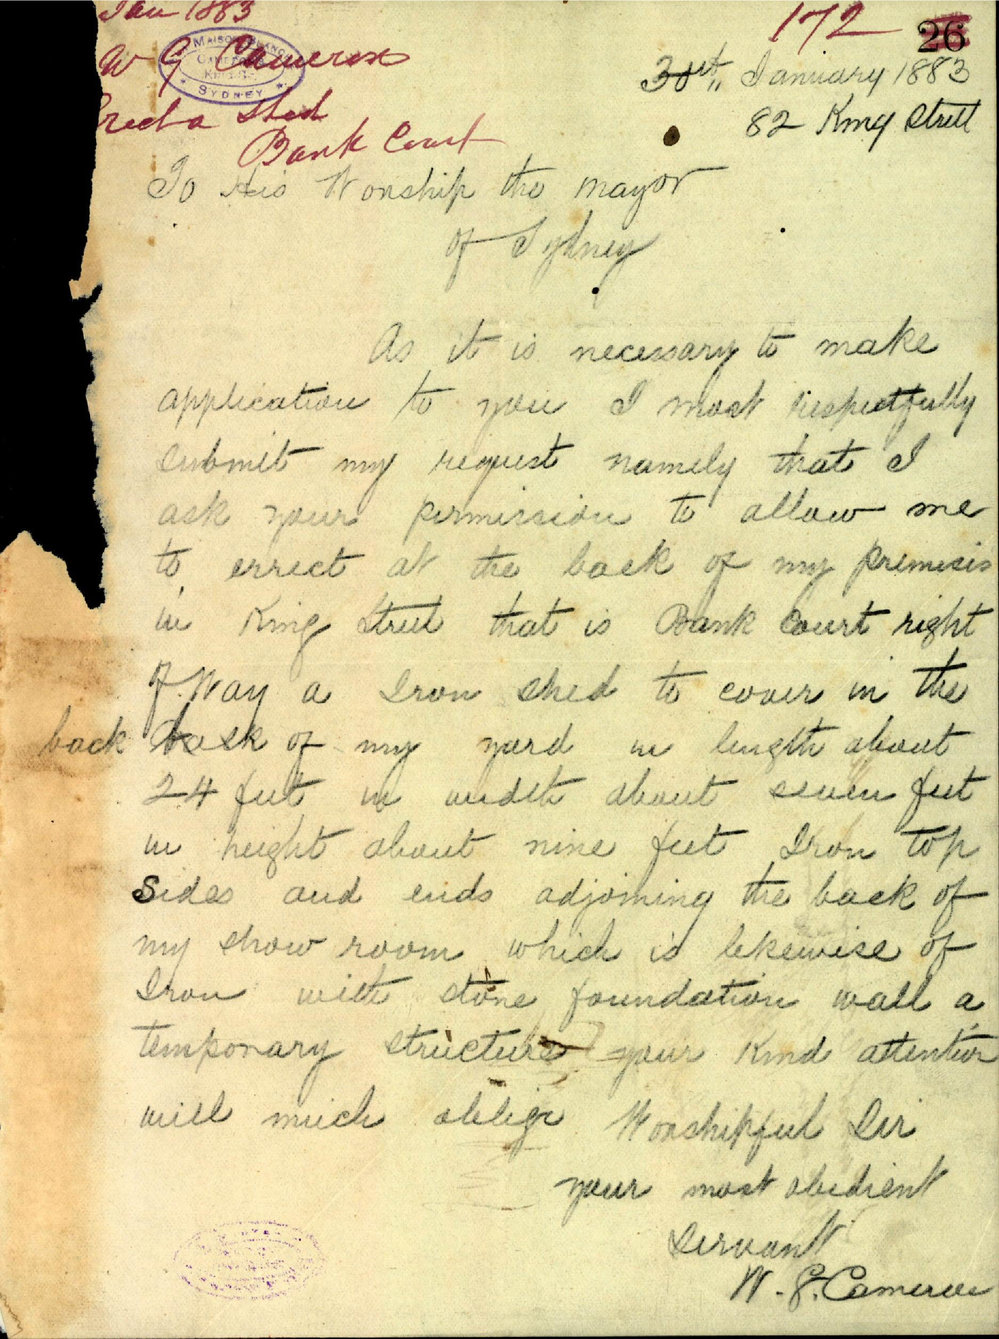 Jan 1883
172
26
W G Cameron
MAISON
SYDNEY
31st January 1883
Erect a Shed
82 King Street
Bank Court
To His Worship the mayor
of Sydney
As it is necessary to make
application to you I most respectfully
submit my request namely that I
ask your permission to allow me
to errect at the back of my premisis
in King Street that is Bank Court right
of Way a Iron shed to cover in the
back back of my yard in length about
24 feet in width about seven feet
in height about nine feet Iron top
Sides and ends adjoining the back of
my show room which is likewise of
Iron with stone foundation wall a
temporary structure your kind attention
will much oblige Worshipful Sir
your most obedient
Servant
W. G. Cameron